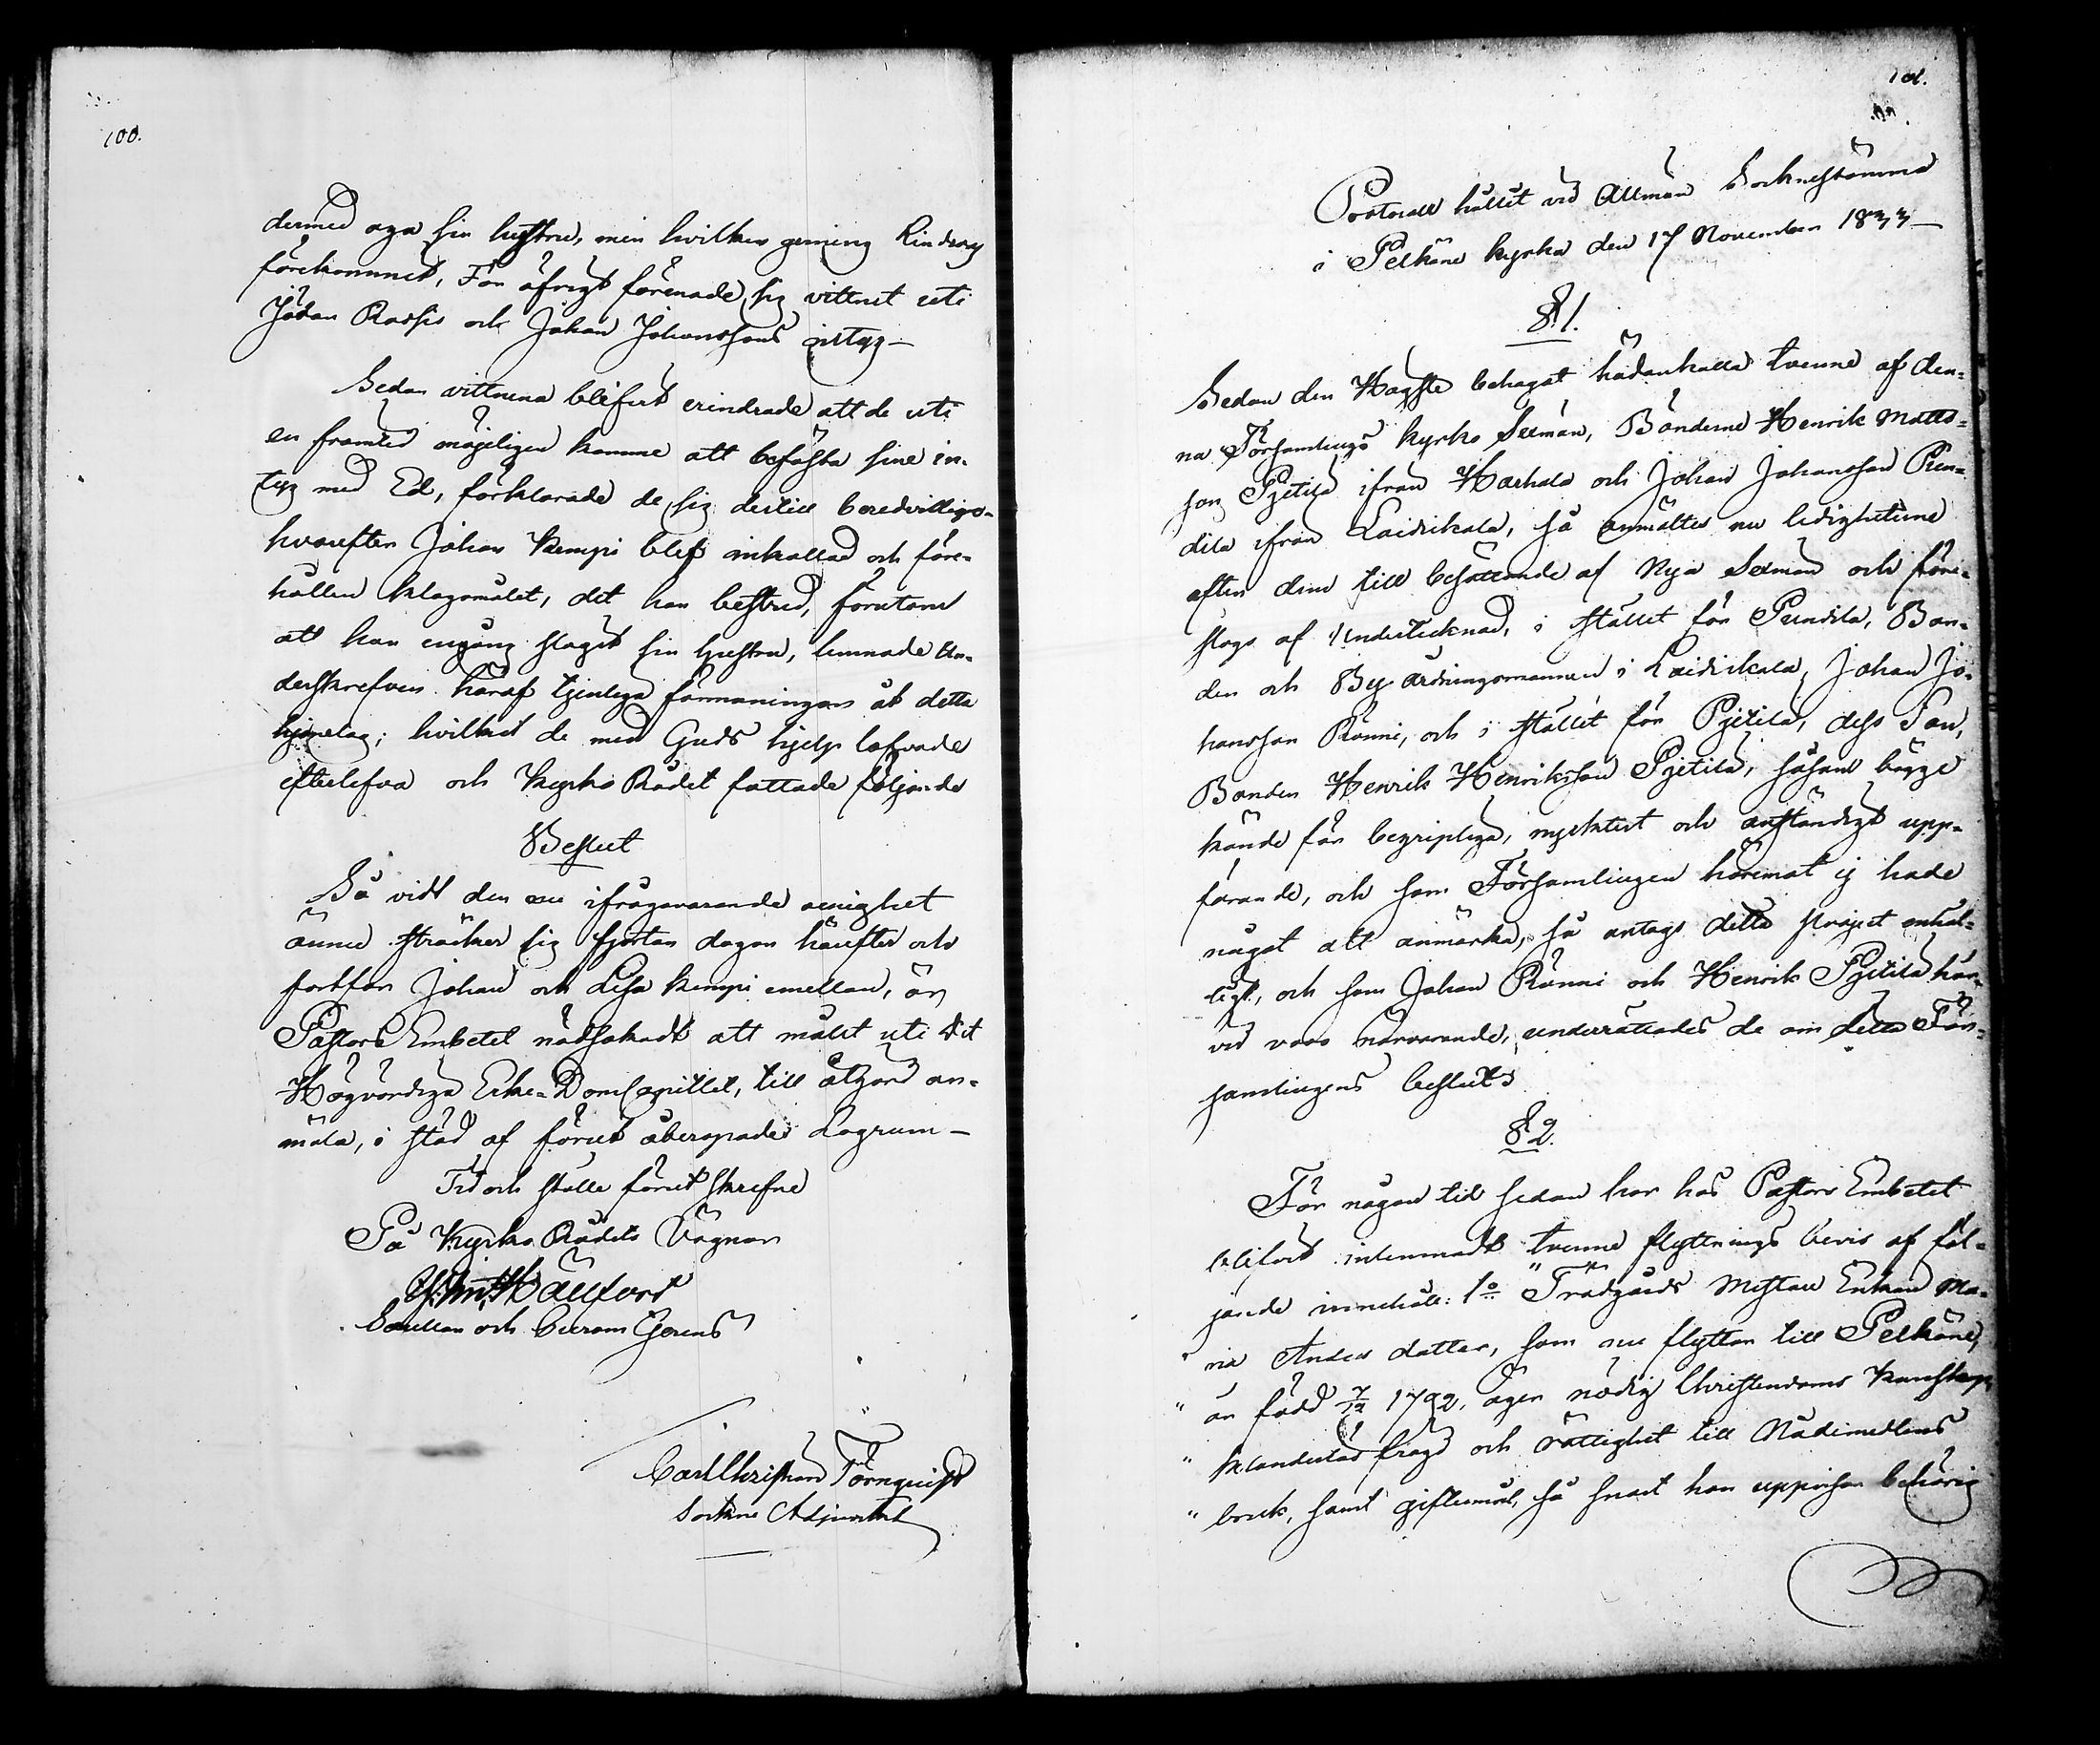 100.
dermed aga sin hustru, men hvilken gerning Lindroos
förekommit. För öfrigt förenade sig vittnet uti
Johan Rassis och Johan Johanssons intyg —
Sedan vittnena blifvit erindrade att de uti
en framtid möjeligen komme att befästa sine in-
tyg med Ed, förklarade de sig dertill beredvillige-
hvarefter Johan Kempi blef inkallad och före-
hållen klagomålet, det han bestred, förutom
att han engång slagit sin hustru, lemnade un-
derskrefven häraf tjenliga förmaningar åt detta
hjonelag; hvilket de med Guds hjelp lofvade
efterlefva och Kyrko Rådet fattade följande
Beslut
Så vidt den nu ifrågavarande oenighet
ännu sträcker sig fjorton dagar härefter och
fortfar Johan och Lisa Kempi emellan, är
Pastors Embetet nödsakadt att målet uti Det
Högvördiga Erke-DomCapitlet, till åtgärd an-
mäla, i stöd af förut åberopade Lagrum —
Tid och ställe förut skrefne
På Kyrko Rådets Vägnar
Hällfors
Capellan och Curam Gerens
Carl Christian Törnqvist
Sockne Adjunct
101.
Protocoll hållit vid Allmän Socknestämma
i Pelkäne kyrka den 17 November 1833 —
§ 1.
Sedan den Högste behagat hädankalla tvenne af den-
na Församlings kyrko Sexmän, Bönderne Henrik Matts-
son Pjetilä ifrån Harhala och Johan Johansson Pun-
dila ifrån Laidikala, så anmältes nu ledigheterne
efter dem till besättande af Nya Sexmän och före-
slogs af Undertecknad, i stället för Pundila, Bon-
den och By ordningsmannen i Laidikala, Johan Jo-
hansson Rönni, och i stället för Pjetilä, dess Son,
Bonden Henrik Henriksson Pjetilä, såsom bägge
kände för begripliga, nycktert och anständigt upp-
förande, och som Församlingen häremot ej hade
något att anmärka, så antogs detta project enhäl-
ligt, och som Johan Rönni och Henrik Pjetilä här-
vid voro närvarande, underrättades de om detta För-
samlingens beslut
§ 2.
För någon tid sedan har hos Pastors Embetet
blifvit inlemnadt tvenne flyttnings bevis af föl-
jande innehåll: 1o "Trädgårds Mästare Enkan Ma-
" ria Anders dotter, som nu flyttar till Pelkäne,
" är född 7/12 1792, äger nödig Christendoms kunskap,
" klanderlös frägd och rättighet till Nådemedlens
" bruk, samt giftermål, så snart hon uppvisar behörig